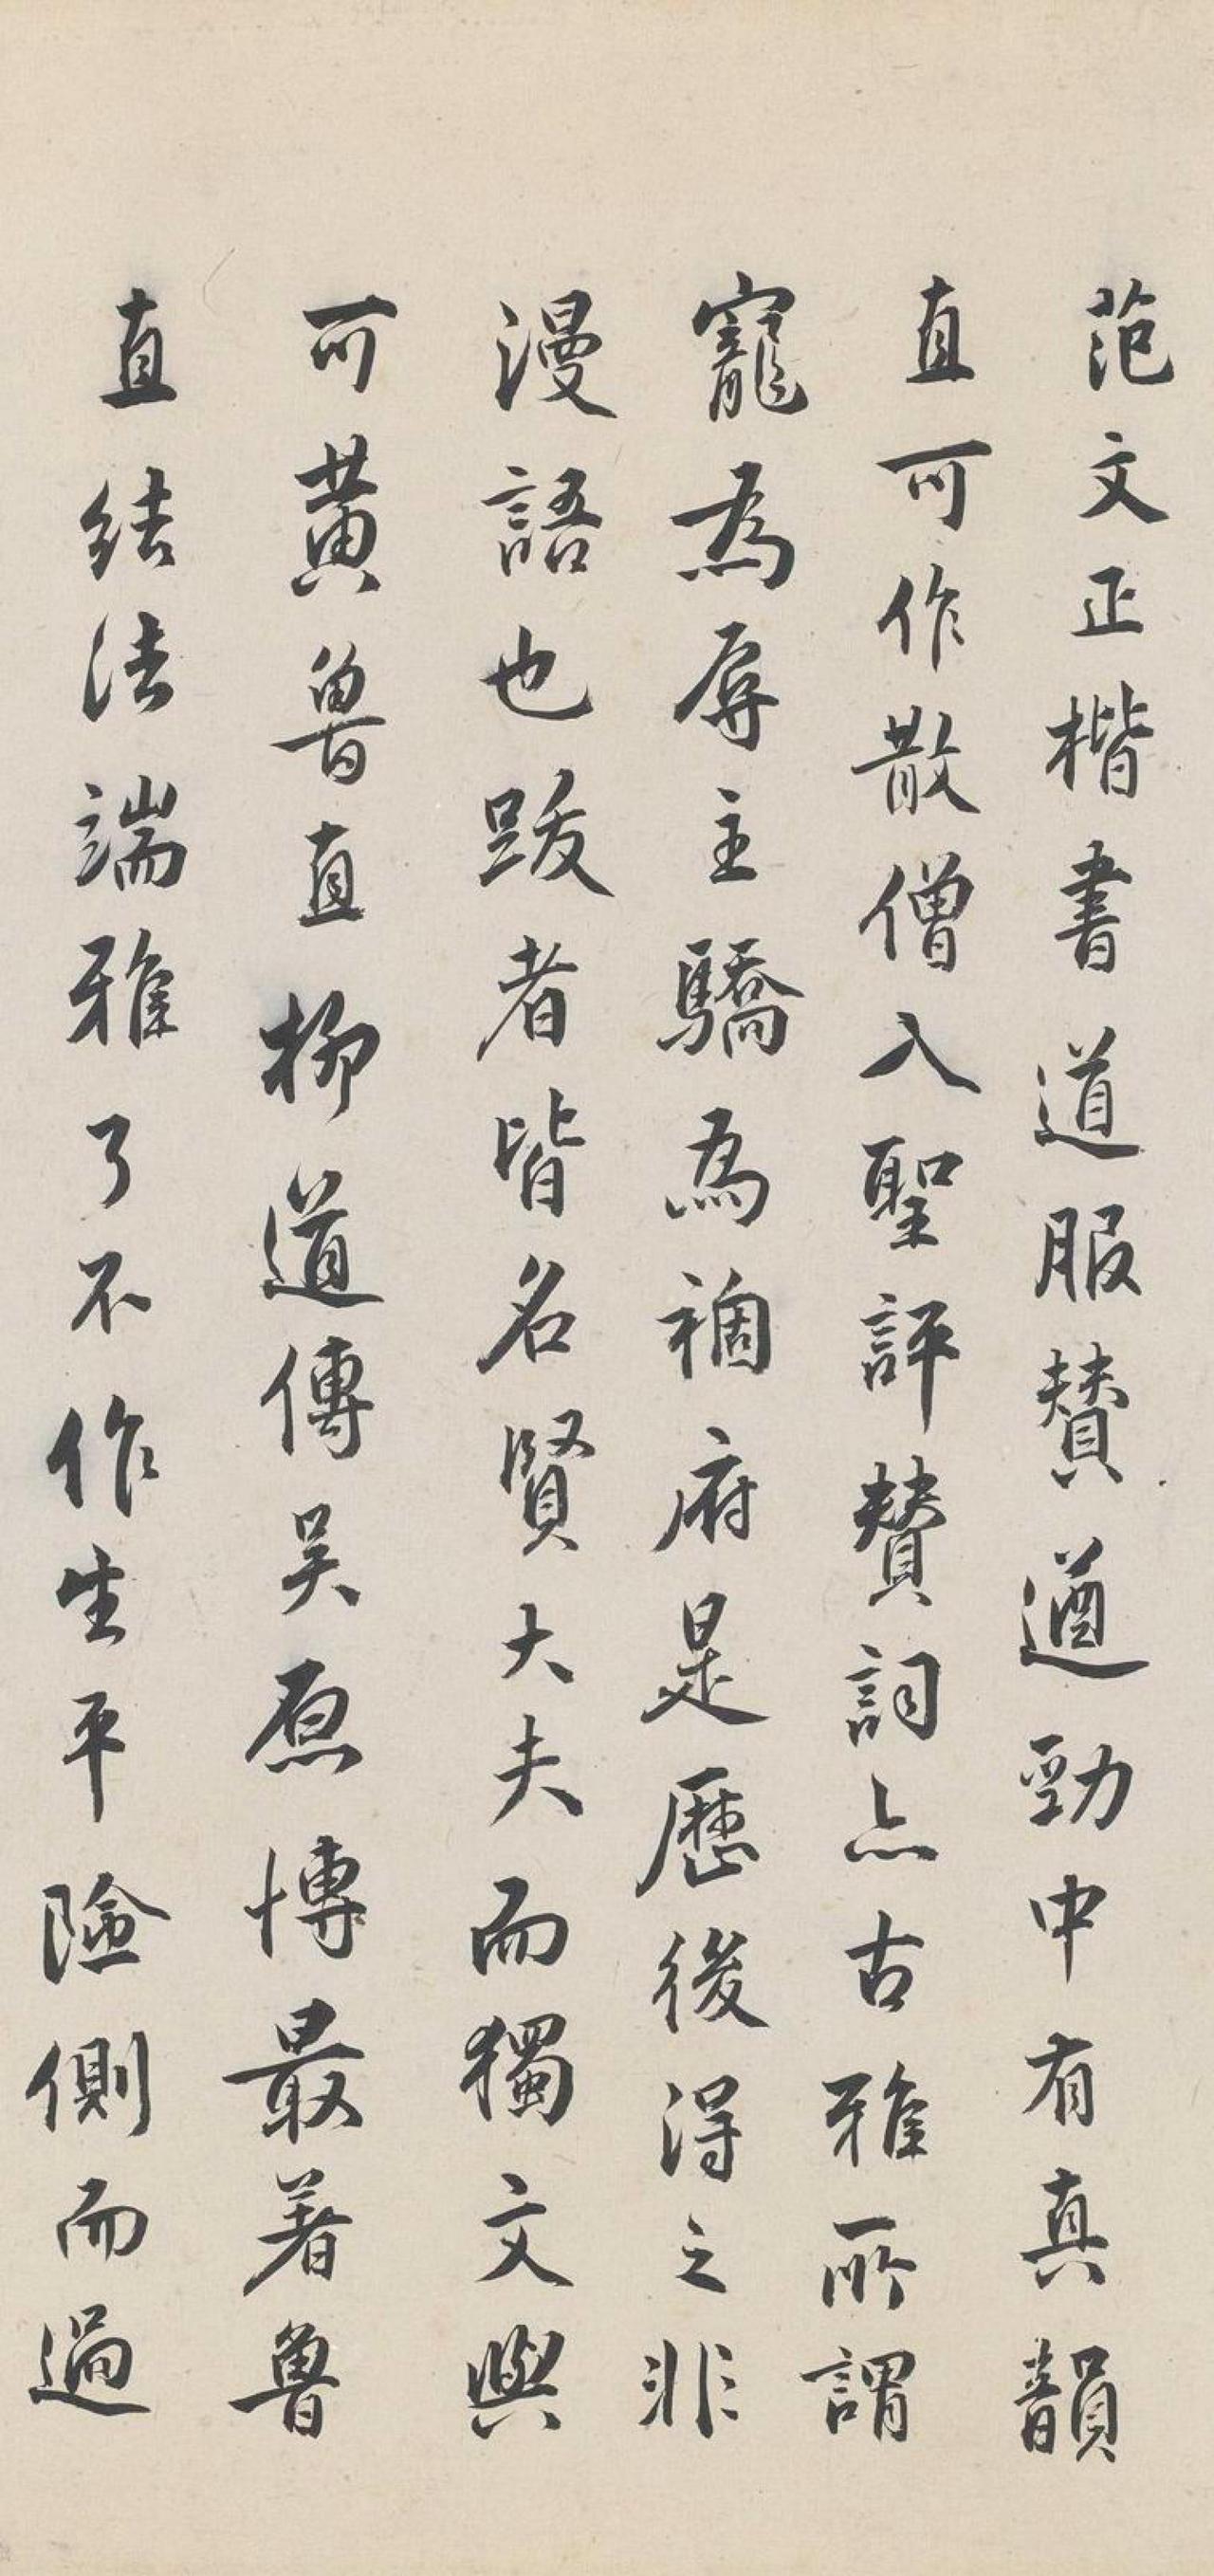 范文正楷書道服賛遒勁中有真韻
直可作散僧入聖評賛詞亦古雅所謂
寵為辱主驕為禍府是歷後得之非
漫語也跋者皆名賢大夫而獨文與
可黄魯直柳道傳吴原博最著魯
直結法端雅了不作生平險側而過